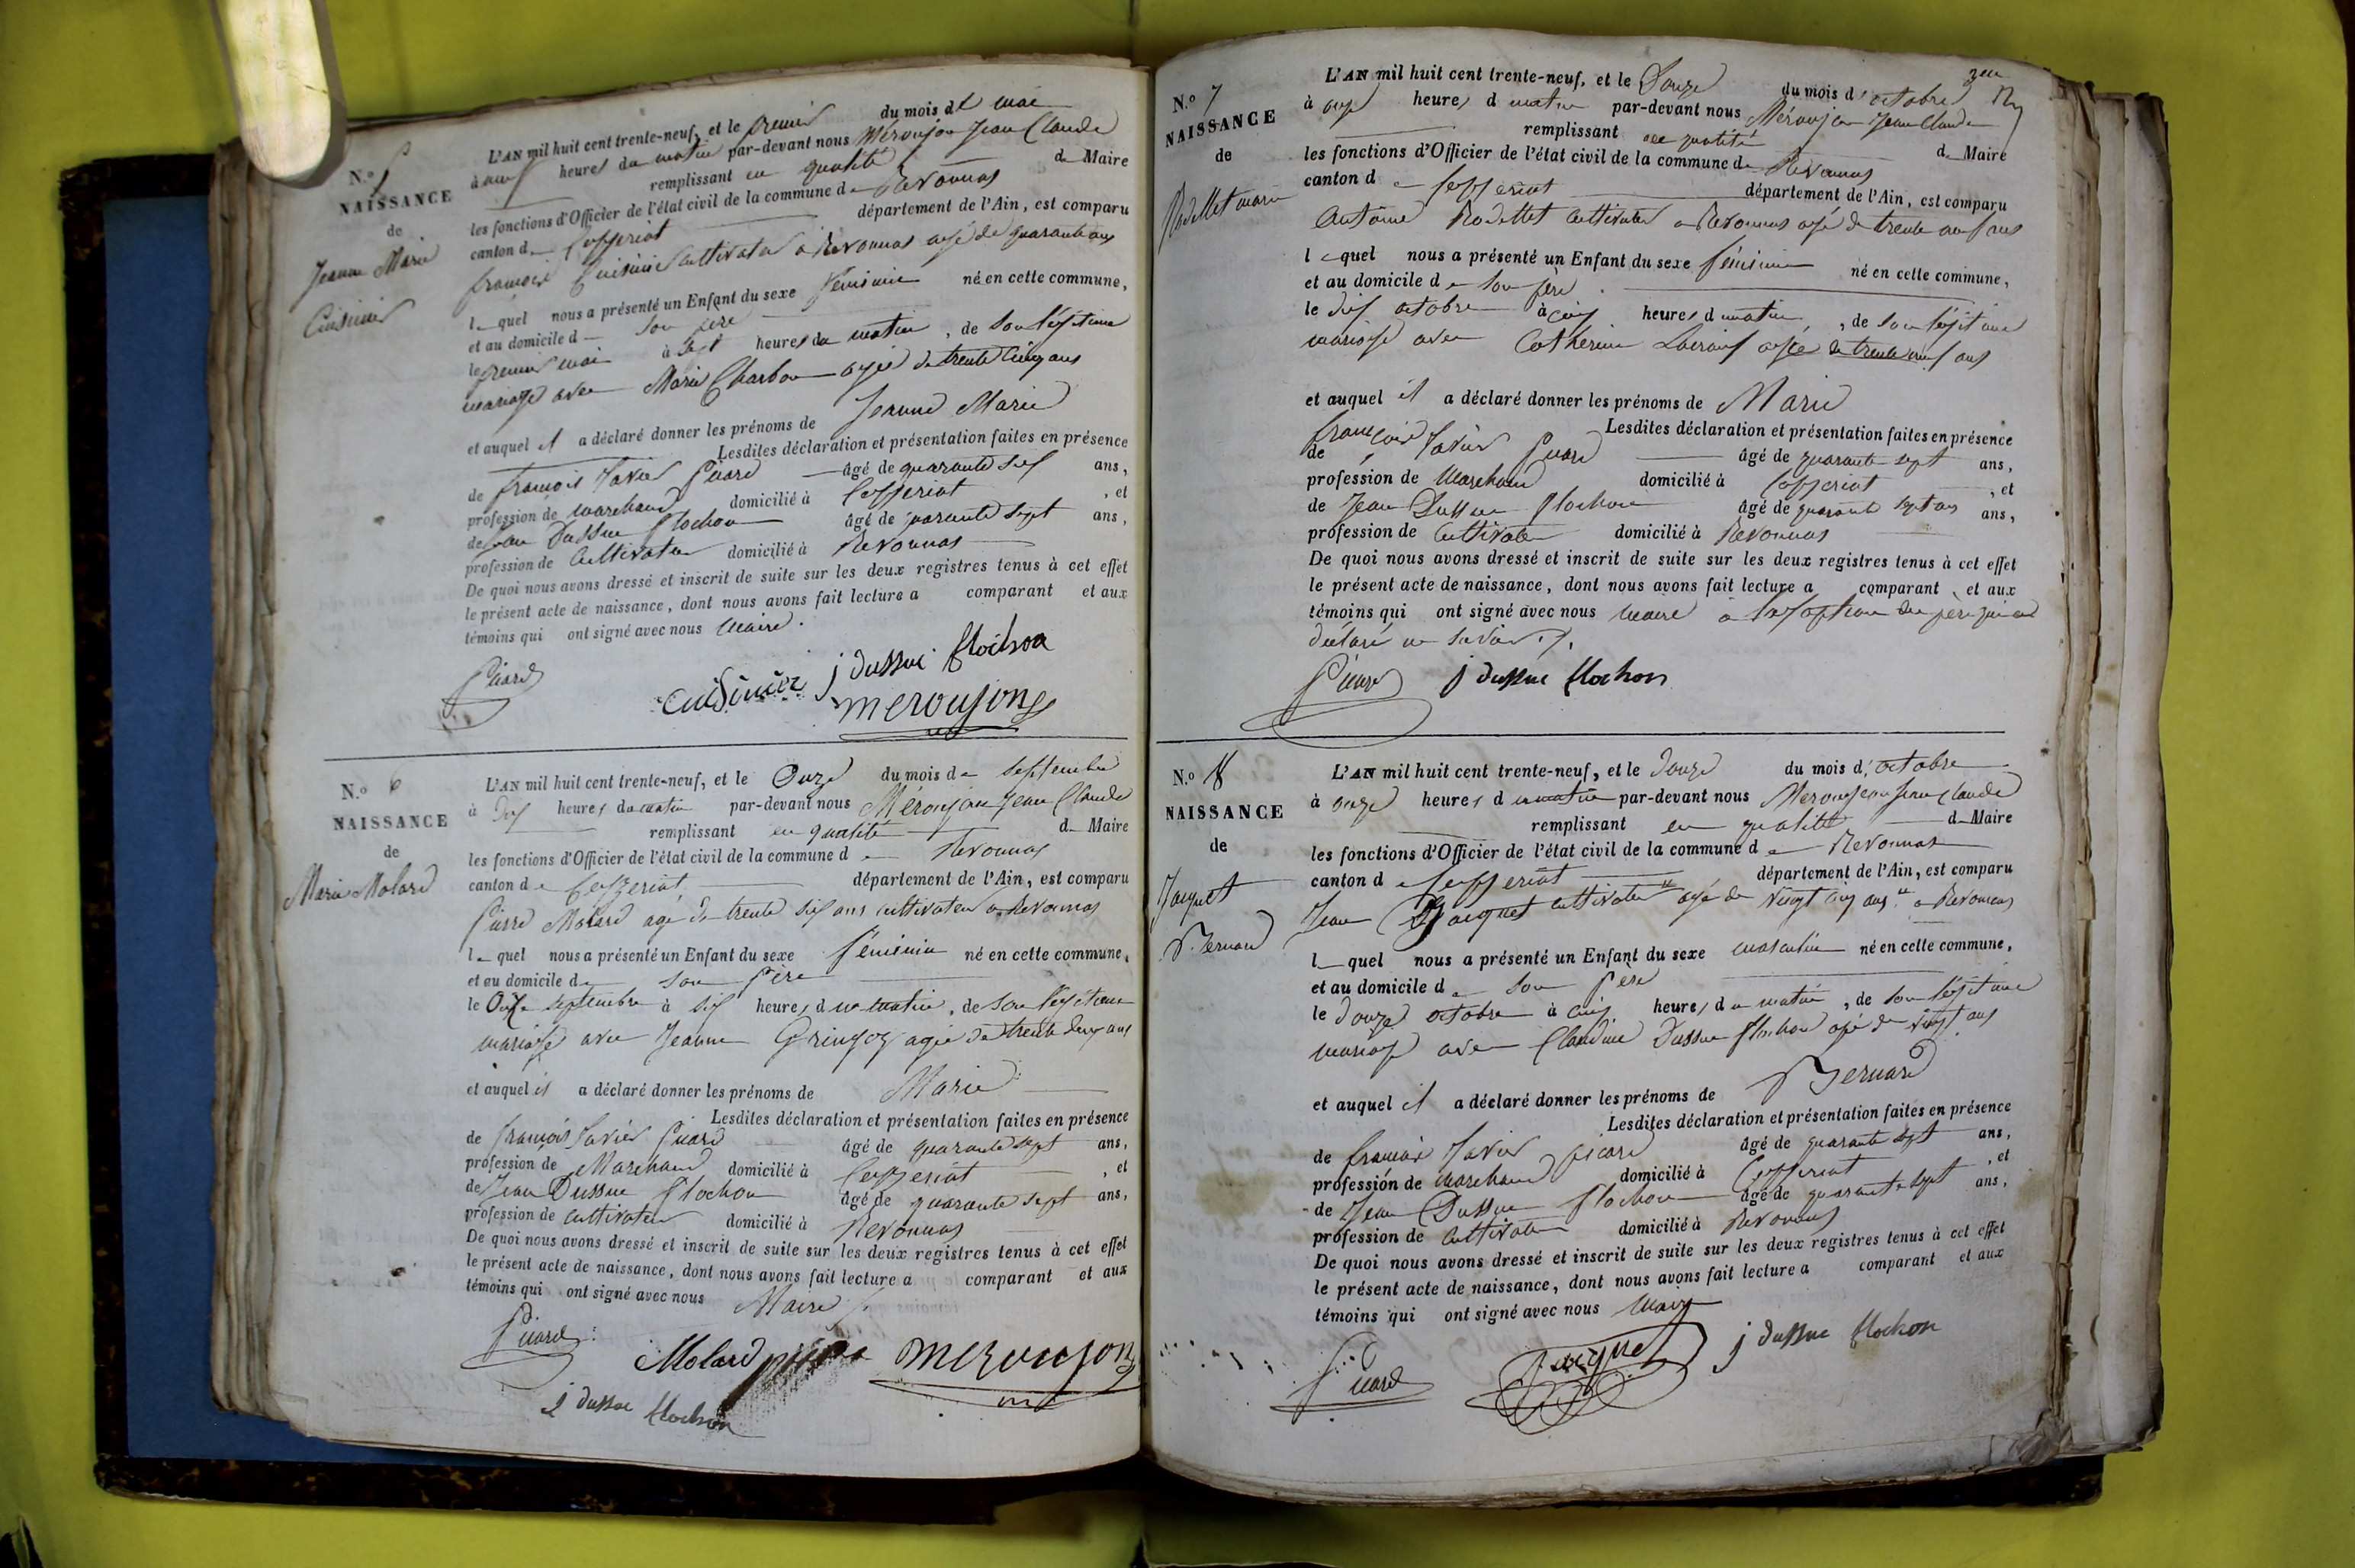 N.º 5
NAISSANCE
de
Jeanne Marie
Cuisinier
L'AN mil huit cent trente-neuf, et le premier du mois de mai
à neuf heures du matin par-devant nous Méroujon Jean Claude
remplissant en qualité de Maire
les fonctions d'Officier de l'état civil de la commune de Revonnas
canton de Ceyzeriat département de l'Ain, est comparu
françois Cuisinier Cultivateur à Revonnas agé de quarante ans
lequel nous a présenté un Enfant du sexe féminin né en cette commune,
et au domicile de son père
le premier mai à sept heures du matin, de son légitime
mariage avec Marie Charbon agée de trente cinq ans
et auquel il a déclaré donner les prénoms de Jeanne Marie
Lesdites déclaration et présentation faites en présence
de françois Xavier Picard âgé de quarante six ans,
profession de marchand domicilié à Ceyzeriat, et
de Jean Dussuc flochon âgé de quarante sept ans,
profession de Cultivateur domicilié à Revonnas
De quoi nous avons dressé et inscrit de suite sur les deux registres tenus à cet effet
le présent acte de naissance, dont nous avons fait lecture a comparant et aux
témoins qui ont signé avec nous Maire.
Picard
cuisinier j dussuc flochon
meroujon
N.º 6
NAISSANCE
de
Marie Molard
L'AN mil huit cent trente-neuf, et le Onze du mois de septembre
à dix heures du matin par-devant nous Méroujon Jean Claude
remplissant en qualité de Maire
les fonctions d'Officier de l'état civil de la commune de Revonnas
canton de Ceyzeriat département de l'Ain, est comparu
Pierre Molard agé de trente six ans cultivateur a Revonnas
lequel nous a présenté un Enfant du sexe féminin né en cette commune,
et au domicile de son Père
le Onze septembre à six heures du matin, de son légitime
mariage avec Jeanne Gringoz agée de trente deux ans
et auquel il a déclaré donner les prénoms de Marie
Lesdites déclaration et présentation faites en présence
de françois Xavier Picard âgé de quarante sept ans,
profession de Marchand domicilié à Ceyzeriat, et
de Jean Dussuc flochon âgé de quarante sept ans,
profession de cultivateur domicilié à Revonnas
De quoi nous avons dressé et inscrit de suite sur les deux registres tenus à cet effet
le présent acte de naissance, dont nous avons fait lecture a comparant et aux
témoins qui ont signé avec nous Maire
Picard
Molard pierre meroujon
j dussuc flochon
N.º 7
NAISSANCE
de
Rodettet marie
L'AN mil huit cent trente-neuf, et le Douze du mois d'octobre
à onze heures du matin par-devant nous Méroujon Jean Claude
remplissant en qualité de Maire
les fonctions d'Officier de l'état civil de la commune de Revonnas
canton de Ceyzeriat département de l'Ain, est comparu
Antoine Rodettet cultivateur a Revonnas agé de trente neuf ans
lequel nous a présenté un Enfant du sexe féminin né en cette commune,
et au domicile de son père
le dix octobre à cinq heures du matin, de son légitime
mariage avec Catherine agée de trente neuf ans
et auquel il a déclaré donner les prénoms de Marie
Lesdites déclaration et présentation faites en présence
de françois Xavier Picard âgé de quarante sept ans,
profession de Marchand domicilié à Ceyzeriat, et
de Jean Dussuc flochon âgé de quarante sept ans ans,
profession de Cultivateur domicilié à Revonnas
De quoi nous avons dressé et inscrit de suite sur les deux registres tenus à cet effet
le présent acte de naissance, dont nous avons fait lecture a comparant et aux
témoins qui ont signé avec nous maire a l'exception du père qui a
déclaré ne savoir.
Picard j dussuc flochon
N.º 8
NAISSANCE
de
Jacquet
Bernard
L'AN mil huit cent trente-neuf, et le douze du mois d'octobre
à onze heures du matin par-devant nous Meroujon Jean Claude
remplissant en qualité de Maire
les fonctions d'Officier de l'état civil de la commune de Revonnas
canton de Ceyzeriat département de l'Ain, est comparu
Jean Jacquet cultivateur agé de vingt cinq ans a Revonnas
lequel nous a présenté un Enfant du sexe masculin né en cette commune,
et au domicile de son Père
le douze octobre à cinq heures du matin, de son légitime
mariage avec Claudine Dussuc flochon agé de vingt ans
et auquel il a déclaré donner les prénoms de Bernard
Lesdites déclaration et présentation faites en présence
de françois Xavier picard âgé de quarante sept ans,
profession de marchand domicilié à Ceyzeriat, et
de Jean Dussuc flochon âgé de quarante sept ans,
profession de Cultivateur domicilié à Revonnas
De quoi nous avons dressé et inscrit de suite sur les deux registres tenus à cet effet
le présent acte de naissance, dont nous avons fait lecture a comparant et aux
témoins qui ont signé avec nous Maire
Picard Jacquet j dussuc flochon